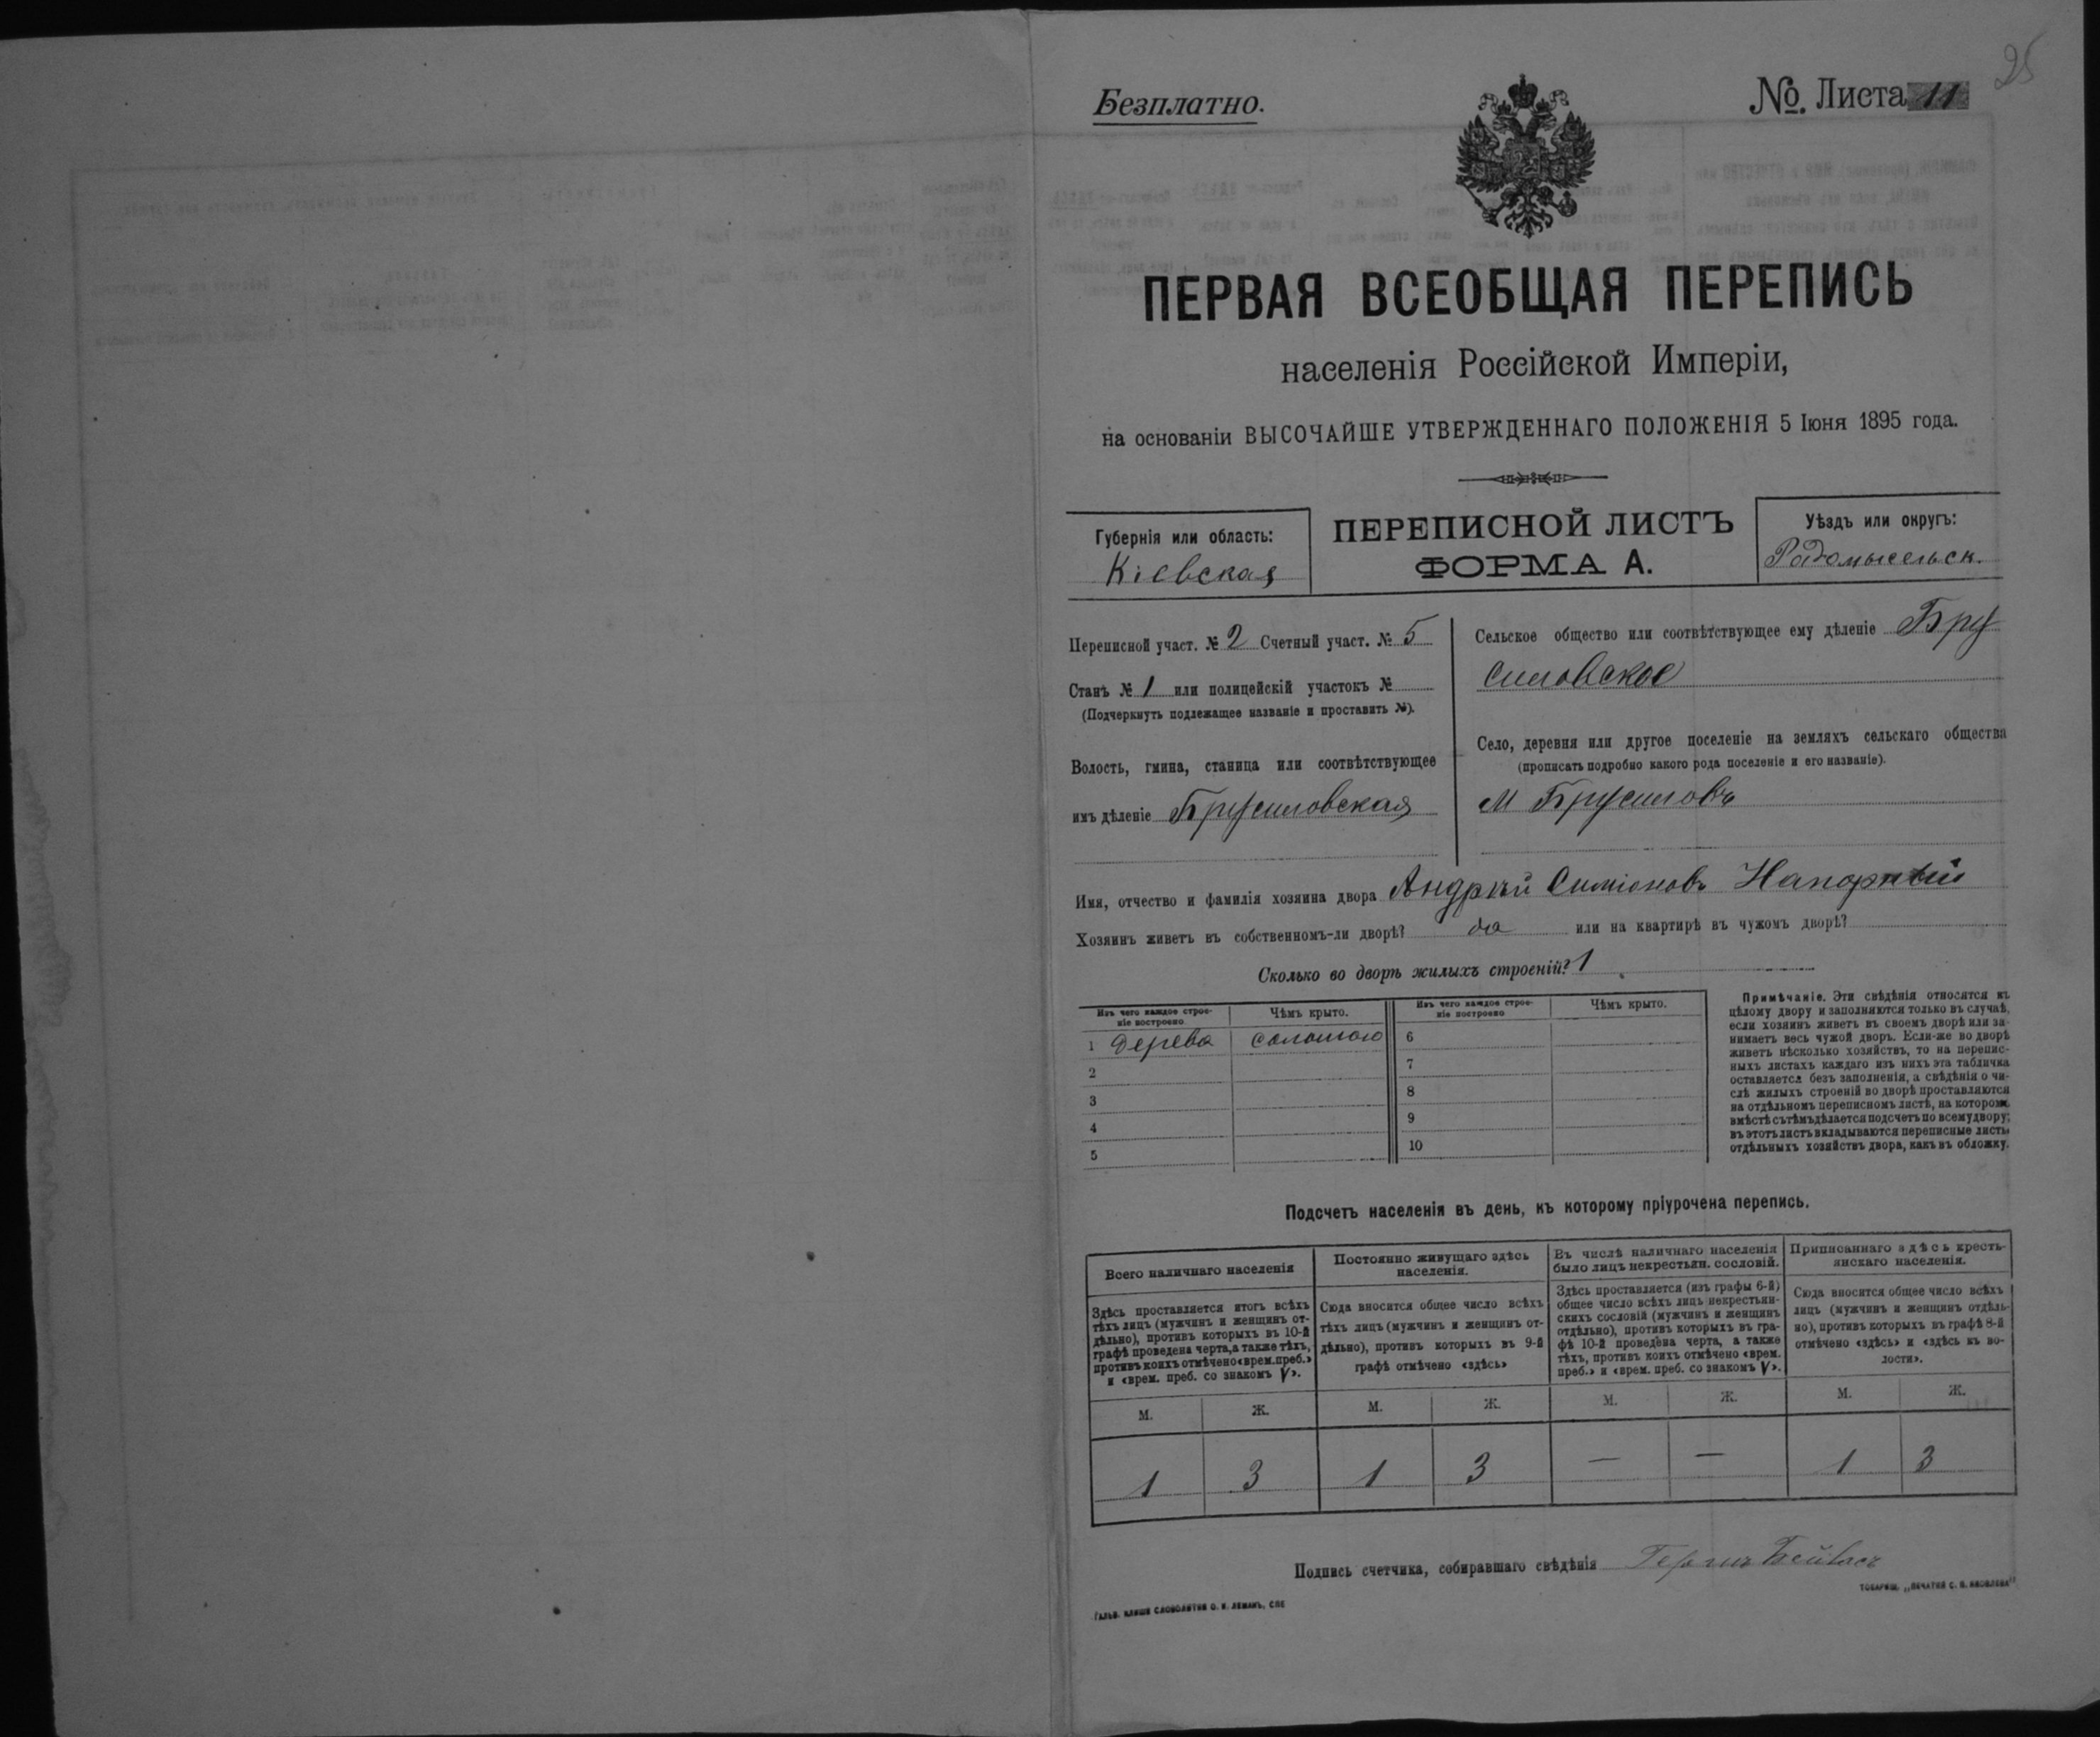 25
Безплатно.
№. Листа 11
ПЕРВАЯ ВСЕОБЩАЯ ПЕРЕПИСЬ
населенія Россійской Имперіи,
на основаніи ВЫСОЧАЙШЕ УТВЕРЖДЕННАГО ПОЛОЖЕНІЯ 5 Іюня 1895 года.
Губернія или область:
Кіевская
ПЕРЕПИСНОЙ ЛИСТЪ
ФОРМА А.
Уѣздъ или округъ:
Радомысельск.
Переписной участ. № 2 Счетный участ. № 5
Станъ № 1 или полицейскій участокъ №
(Подчеркнуть подлежащее названіе и проставить №).
Волость, гмина, станица или соотвѣтствующее
имъ дѣленіе Брусиловская
Сельское общество или соотвѣтствующее ему дѣленіе Бру
силовское
Село, деревня или другое поселеніе на земляхъ сельскаго общества
(прописать подробно какого рода поселеніе и его названіе).
М Брусиловъ
Имя, отчество и фамилія хозяина двора Андрей Симіоновъ
Хозяинъ живетъ въ собственномъ-ли дворѣ? да или на квартирѣ въ чужомъ дворѣ?
Сколько во дворѣ жилыхъ строеній? 1
Изъ чего каждое строе-
ніе построено
Чѣмъ крыто.
Изъ чего каждое строе-
ніе построено
Чѣмъ крыто.
1 Дерева соломою 6
2 7
3 8
4 9
5 10
Примѣчаніе. Эти свѣдѣнія относятся къ
цѣлому двору и заполняются только въ случаѣ,
если хозяинъ живетъ въ своемъ дворѣ или за-
нимаетъ весь чужой дворъ. Если-же во дворѣ
живетъ нѣсколько хозяйствъ, то на перепис-
ныхъ листахъ каждаго изъ нихъ эта табличка
оставляется безъ заполненія, а свѣдѣнія о чи-
слѣ жилыхъ строеній во дворѣ проставляются
на отдѣльномъ переписномъ листѣ, на которомъ
вмѣстѣ съ тѣмъ дѣлается подсчетъ по всему двору;
въ этотъ листъ вкладываются переписные листы
отдѣльныхъ хозяйствъ двора, какъ въ обложку.
Подсчетъ населенія въ день, къ которому пріурочена перепись.
Всего наличнаго населенія
Здѣсь проставляется итогъ всѣхъ
тѣхъ лицъ (мужчинъ и женщинъ от-
дѣльно), противъ которыхъ въ 10-й
графѣ проведена черта, а также тѣхъ,
противъ коихъ отмѣчено «врем. преб.»
и «врем. преб. со знакомъ V».
Постоянно живущаго здѣсь
населенія.
Сюда вносится общее число всѣхъ
тѣхъ лицъ (мужчинъ и женщинъ от-
дѣльно), противъ которыхъ въ 9-й
графѣ отмѣчено «здѣсь»
Въ числѣ наличнаго населенія
было лицъ некрестьян. сословій.
Здѣсь проставляется (изъ графы 6-й)
общее число всѣхъ лицъ некрестьян-
скихъ сословій (мужчинъ и женщинъ
отдѣльно), противъ которыхъ въ гра-
фѣ 10-й проведена черта, а также
тѣхъ, противъ коихъ отмѣчено «врем.
преб.» и «врем. преб. со знакомъ V».
Приписаннаго здѣсь кресть-
янскаго населенія.
Сюда вносится общее число всѣхъ
лицъ (мужчинъ и женщинъ отдѣль-
но), противъ которыхъ въ графѣ 8-й
отмѣчено «здѣсь» и «здѣсь къ во-
лости».
М. Ж. М. Ж. М. Ж. М. Ж.
1 3 1 3 — — 1 3
Подпись счетчика, собиравшаго свѣдѣнія
ГАЛЬВ. КЛИШЕ СЛОВОЛИТНИ О. И. ЛЕМАНЪ, СПБ
ТОВАРИЩ. „ПЕЧАТНЯ С. П. ЯКОВЛЕВА“